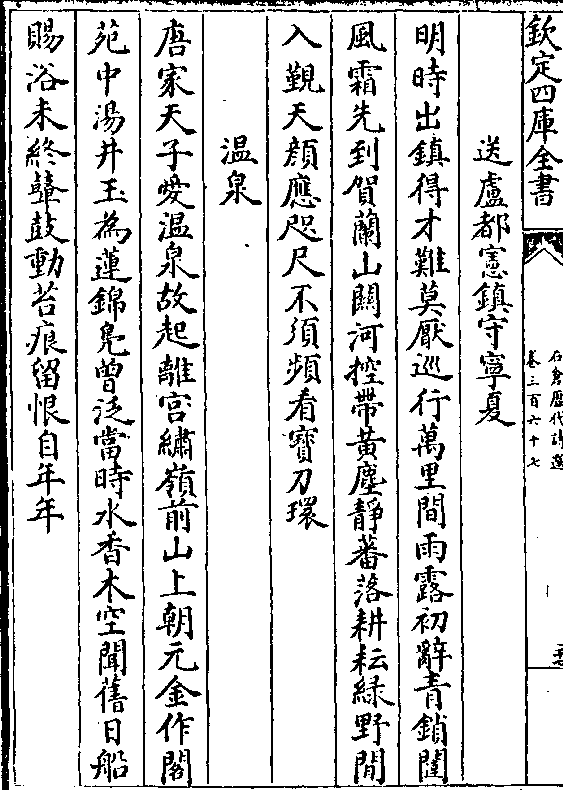 欽定四庫全書
石倉歷代詩選
卷三百六十七
送盧都憲鎮守寧夏
明時出鎮得才難莫厭巡行萬里間雨露初辭青鎖闥
風霜先到賀蘭山關河控帶黃塵靜蕃落耕耘緑野閒
入覲天顔應咫尺不須頻看寳刀環
温泉
唐家天子愛温泉故起離宫繡嶺前山上朝元金作閣
苑中湯井玉為蓮錦鳬曾泛當時水香木空聞舊日船
賜浴未終鼙鼓動苔痕留恨自年年